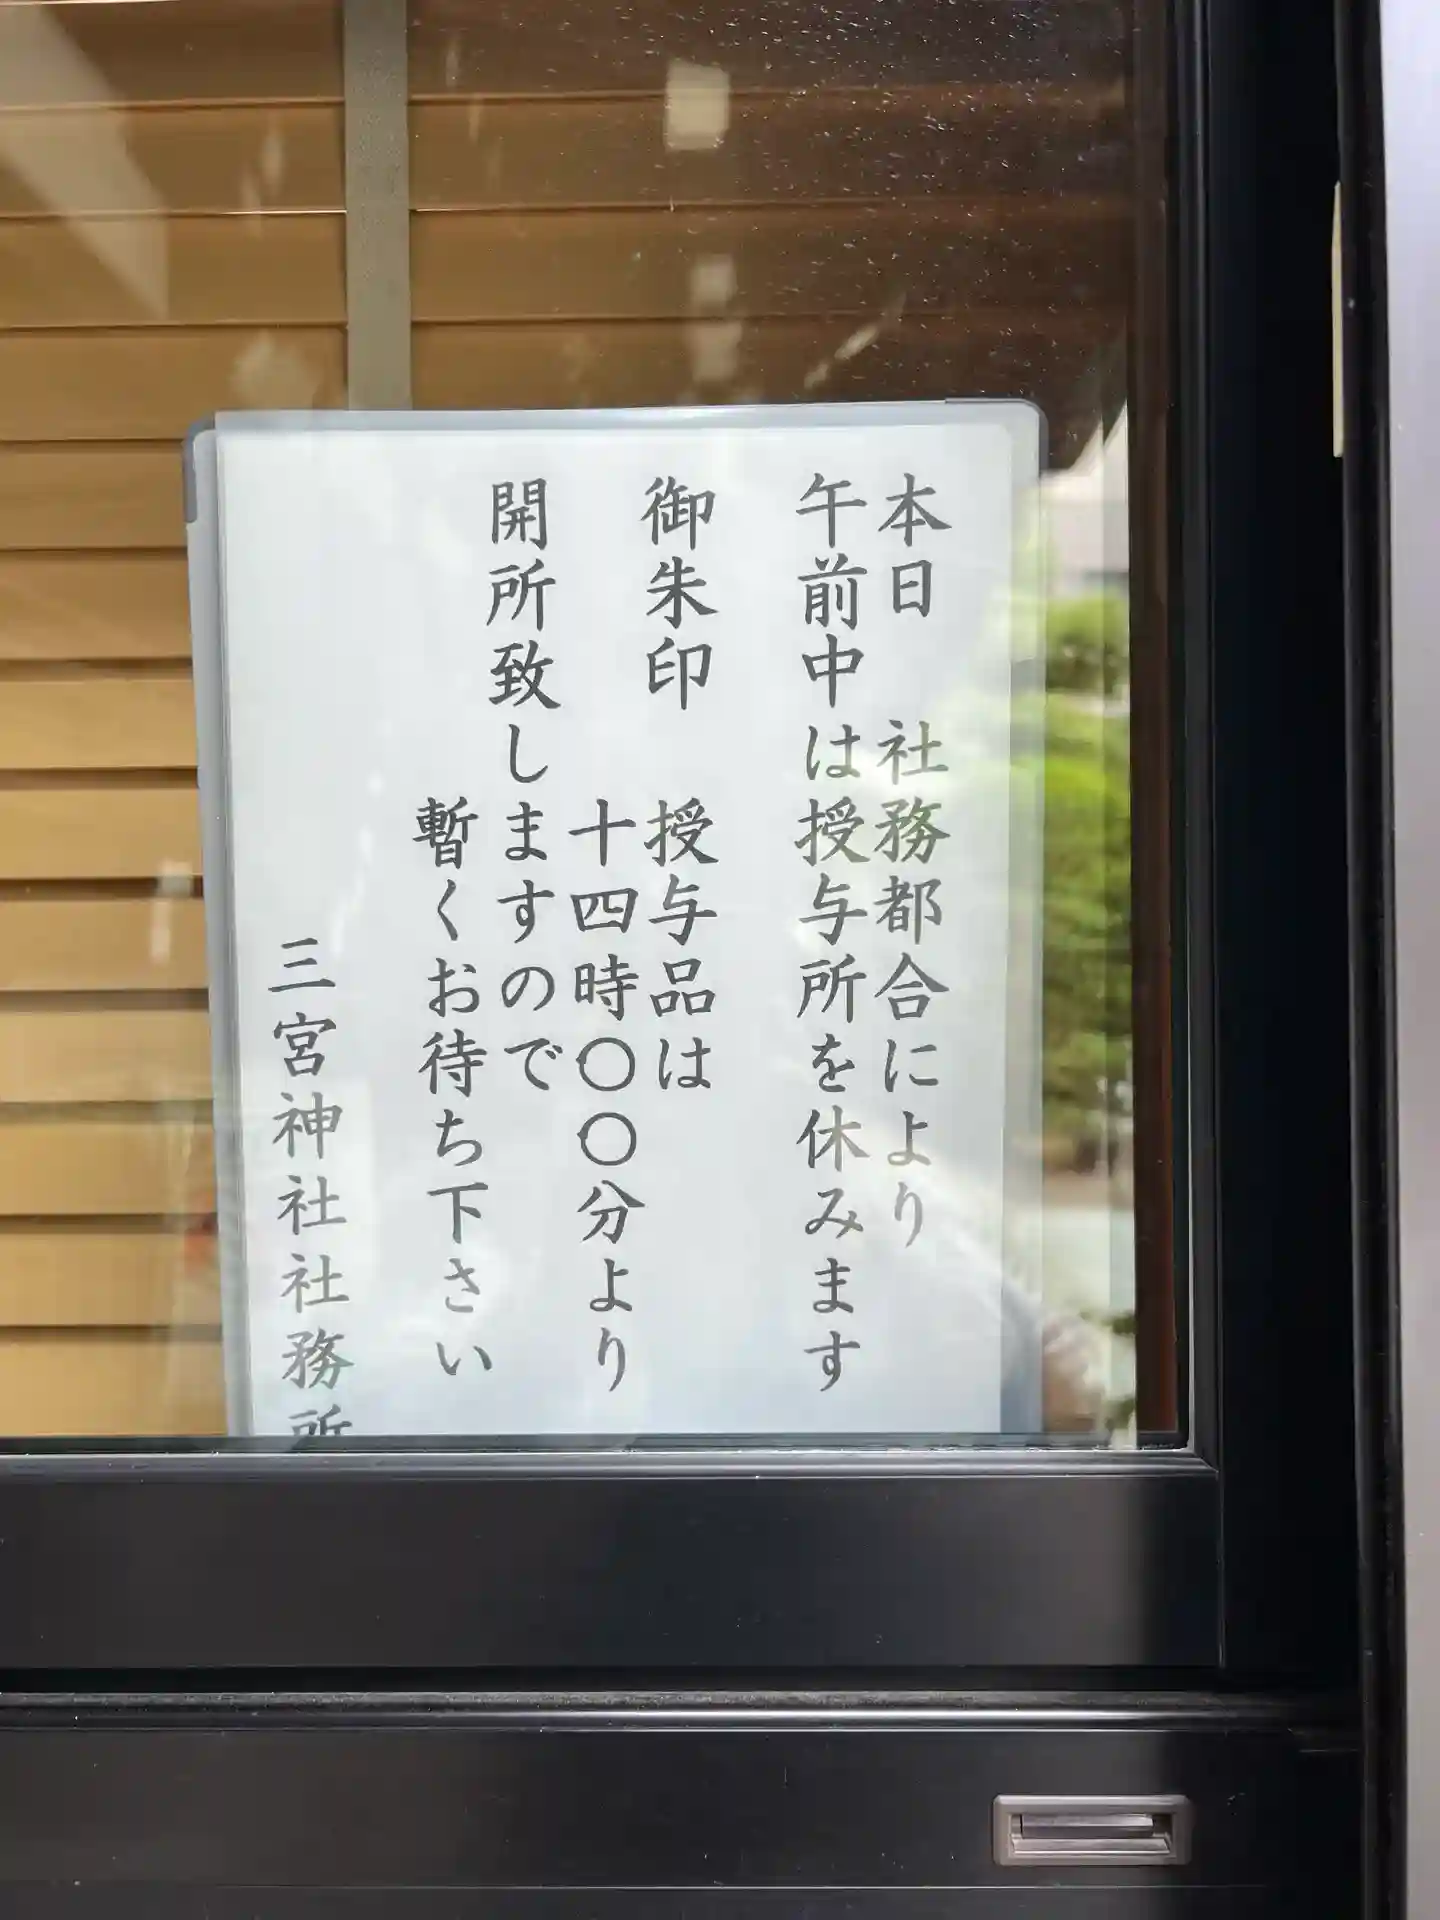 本日　社務都合により
午前中は授与所を休みます
御朱印　授与品は
十四時〇〇分より
開所致しますので
暫くお待ち下さい
三宮神社社務所